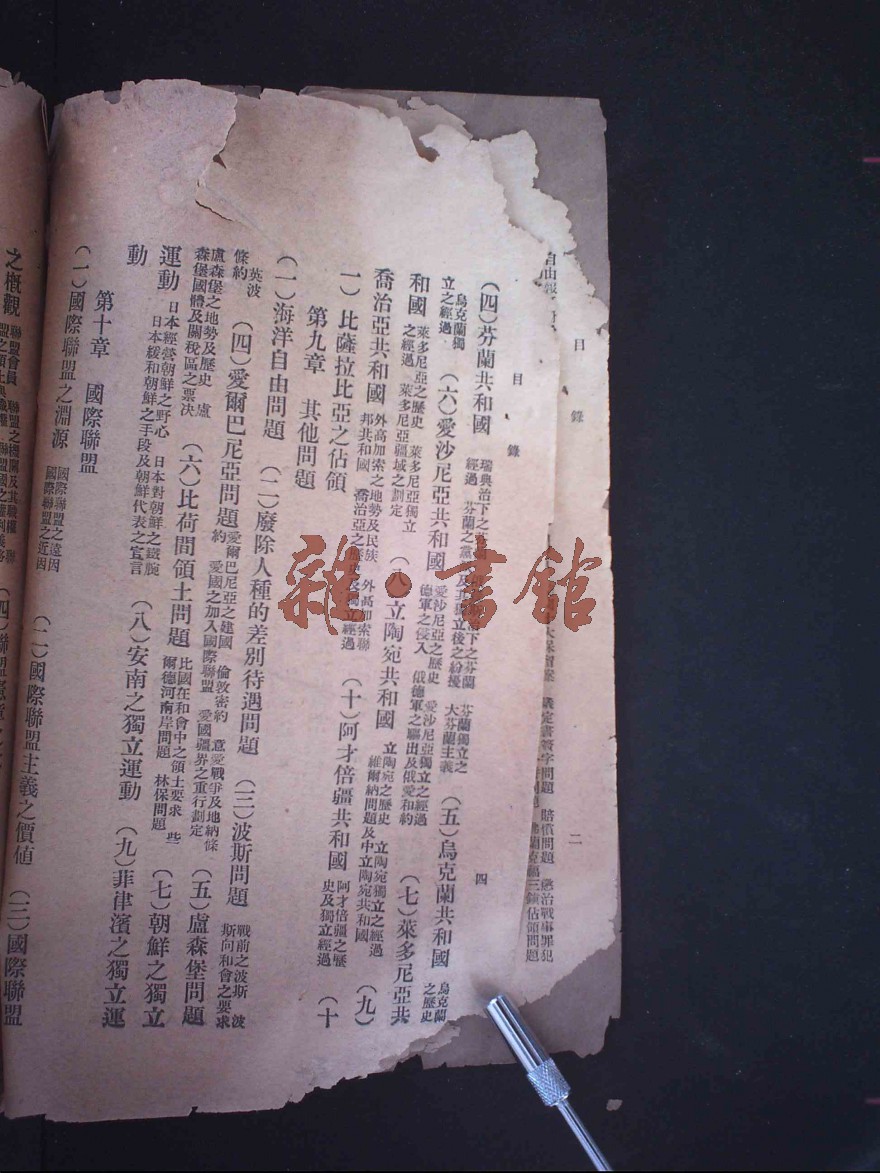 目錄
二
議定書簽字問題 賠償問題 懲治戰事罪犯
三鎮佔領問題
目錄
四
(四)芬蘭共和國 瑞典治下之芬蘭 治下之芬蘭 芬蘭獨立之經過 芬蘭之黨 及其獨立後之紛擾 大芬蘭主義 (五)烏克蘭共和國 烏克蘭之歷史
烏克蘭獨立之經過 (六)愛沙尼亞共和國 愛沙尼亞之歷史 愛沙尼亞獨立之經過 德軍之侵入 俄德軍之驅出及俄愛和約 (七)萊多尼亞共
和國 萊多尼亞之歷史 萊多尼亞獨立之經過 萊多尼亞疆域之劃定 (八)立陶宛共和國 立陶宛之歷史 立陶宛獨立之經過 維爾納問題及中立陶宛共和國 (九)
喬治亞共和國 外高加索之地勢及民族 外高加索聯邦共和國 喬治亞之歷史及獨立經過 (十)阿才倍疆共和國 阿才倍疆之歷史及獨立經過 (十
一)比薩拉比亞之佔領
第九章 其他問題
(一)海洋自由問題 (二)廢除人種的差別待遇問題 (三)波斯問題 戰前之波斯 波斯向和會之要求
英波條約 (四)愛爾巴尼亞問題 愛爾巴尼亞之建國 倫敦密約 意愛戰爭及地納條約 愛國之加入國際聯盟 愛國疆界之重行劃定 (五)盧森堡問題
盧森堡之地勢及歷史 盧森堡國體及關稅區之票決 (六)比荷間領土問題 比國在和會中之領土要求 些爾德河南岸問題 林保問題 (七)朝鮮之獨立
運動 日本經營朝鮮之野心 日本對朝鮮之鐵腕 日本緩和朝鮮之手段及朝鮮代表之宣言 (八)安南之獨立運動 (九)菲律濱之獨立運
動
第十章 國際聯盟
(一)國際聯盟之淵源 國際聯盟之遠因 國際聯盟之近因 (二)國際聯盟主義之價値 (三)國際聯盟
之概觀 聯盟會員 聯盟之機關及其職權
雜·書館